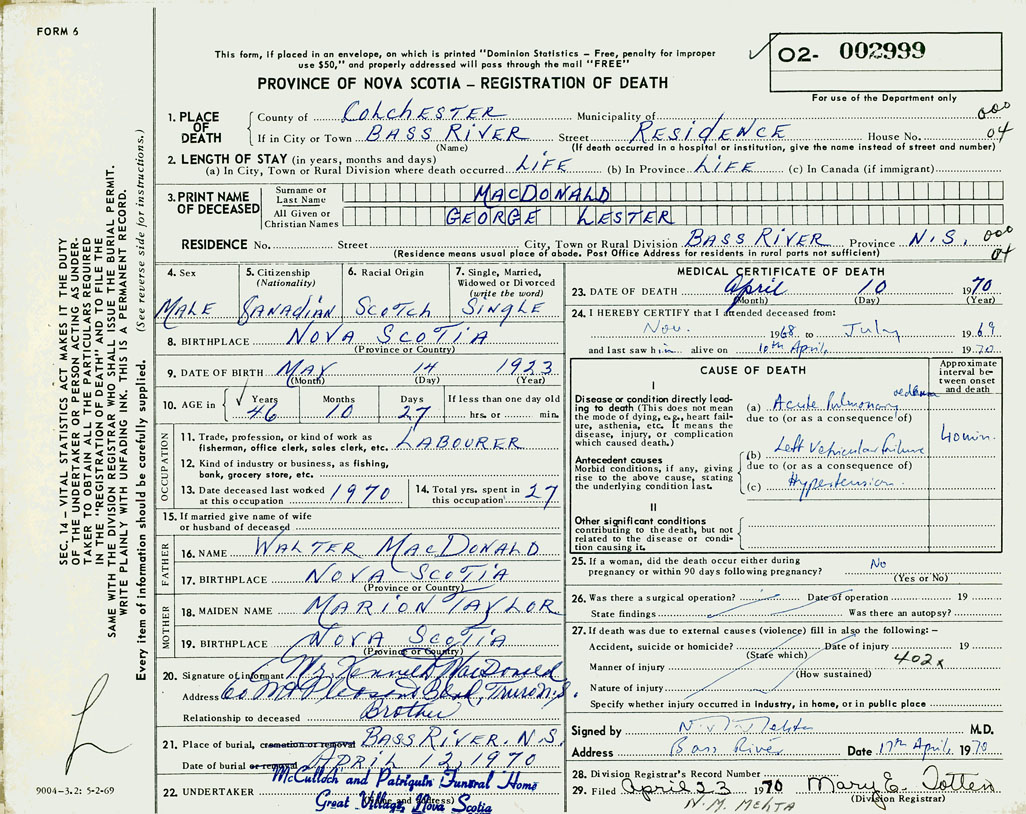 FORM 6
This form, if placed in an envelope, on which is printed "Dominion Statistics – Free, penalty for improper
use $50," and properly addressed will pass through the mail "FREE"
02- 002999
For use of the Department only
PROVINCE OF NOVA SCOTIA – REGISTRATION OF DEATH
1. PLACE OF DEATH
County of COLCHESTER Municipality of 000
If in City or Town BASS RIVER Street RESIDENCE House No. 04
(Name) (If death occurred in a hospital or institution, give the name instead of street and number)
2. LENGTH OF STAY (in years, months and days)
(a) In City, Town or Rural Division where death occurred LIFE (b) In Province LIFE (c) In Canada (if immigrant)
3. PRINT NAME OF DECEASED
Surname or Last Name MACDONALD
All Given or Christian Names GEORGE LESTER
RESIDENCE No. Street City, Town or Rural Division BASS RIVER Province N.S. 000
(Residence means usual place of abode. Post Office Address for residents in rural parts not sufficient) 04
4. Sex MALE
5. Citizenship (Nationality) CANADIAN
6. Racial Origin SCOTCH
7. Single, Married, Widowed or Divorced (write the word) SINGLE
8. BIRTHPLACE NOVA SCOTIA
(Province or Country)
9. DATE OF BIRTH MAY 14 1923
(Month) (Day) (Year)
10. AGE in Years 46 Months 10 Days 27 If less than one day old hrs. or min.
OCCUPATION
11. Trade, profession, or kind of work as
fisherman, office clerk, sales clerk, etc. LABOURER
12. Kind of industry or business, as fishing,
bank, grocery store, etc.
13. Date deceased last worked at this occupation 1970
14. Total yrs. spent in this occupation 27
15. If married give name of wife
or husband of deceased
FATHER
16. NAME WALTER MACDONALD
17. BIRTHPLACE NOVA SCOTIA
(Province or Country)
MOTHER
18. MAIDEN NAME MARION TAYLOR
19. BIRTHPLACE NOVA SCOTIA
(Province or Country)
20. Signature of informant Mr. Kenneth MacDonald
Address Mt Pleasant Truro N.S.
Relationship to deceased Brother
21. Place of burial, cremation or removal BASS RIVER. N.S.
Date of burial or removal APRIL 12, 1970
22. UNDERTAKER McCulloch and Patriquin Funeral Home
(Name and Address)
Great Village, Nova Scotia
MEDICAL CERTIFICATE OF DEATH
23. DATE OF DEATH April 10 1970
(Month) (Day) (Year)
24. I HEREBY CERTIFY that I attended deceased from:
Nov. 1968 to July 1969
and last saw him alive on 10th April, 1970
CAUSE OF DEATH
Approximate interval between onset and death
I
Disease or condition directly lead-
ing to death (This does not mean
the mode of dying, e.g., heart fail-
ure, asthenia, etc. It means the
disease, injury, or complication
which caused death.)
(a) Acute Pulmonary oedema
due to (or as a consequence of)
40 min.
Antecedent causes
Morbid conditions, if any, giving
rise to the above cause, stating
the underlying condition last.
(b) Left Vetricular failure
due to (or as a consequence of)
(c) Hypertension.
II
Other significant conditions
contributing to the death, but not
related to the disease or condi-
tion causing it.
25. If a woman, did the death occur either during
pregnancy or within 90 days following pregnancy? No
(Yes or No)
26. Was there a surgical operation? Date of operation 19
State findings Was there an autopsy?
27. If death was due to external causes (violence) fill in also the following: –
Accident, suicide or homicide? Date of injury 19
(State which) 402x
Manner of injury
(How sustained)
Nature of injury
Specify whether injury occurred in industry, in home, or in public place
Signed by N. M. Mehta M.D.
Address Bass River Date 17th April, 1970
28. Division Registrar's Record Number
29. Filed April 23 1970 Mary E. Totten
(Division Registrar)
N.M. MEHTA
SEC. 14 – VITAL STATISTICS ACT MAKES IT THE DUTY
OF THE UNDERTAKER OR PERSON ACTING AS UNDER-
TAKER TO OBTAIN ALL THE PARTICULARS REQUIRED
IN THE "REGISTRATION OF DEATH" AND TO FILE THE
SAME WITH THE DIVISION REGISTRAR WHO SHALL ISSUE THE BURIAL PERMIT.
WRITE PLAINLY WITH UNFADING INK. THIS IS A PERMANENT RECORD.
Every item of information should be carefully supplied. (See reverse side for instructions.)
9004-3.2: 5-2-69